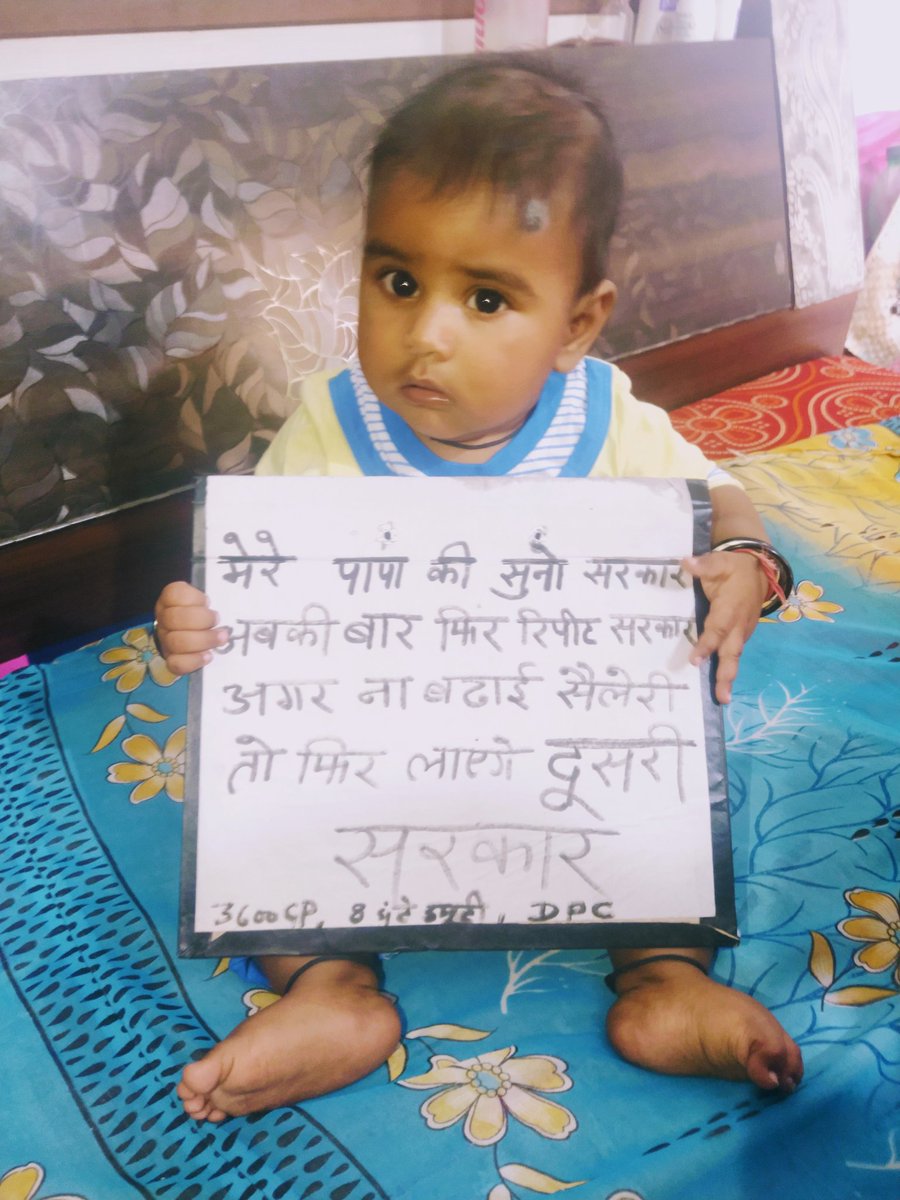 मेरे पापा की सुनो सरकार
अबकी बार फिर रिपीट सरकार
अगर ना बढाई सैलेरी
तो फिर लाएंगे दूसरी
सरकार
3600GP, 8 घंटे ड्यूटी, DPC